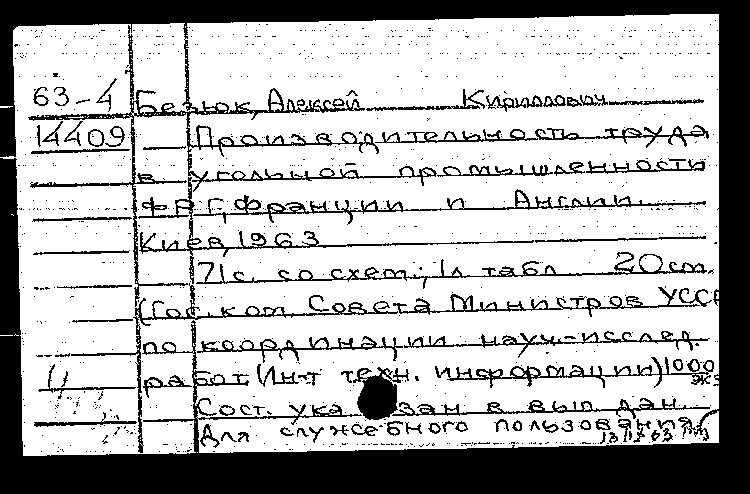 63-4 Безюк, Алексей Кириллович
14409 Производительность труда
в угольной промышленности
ФРГ, Франции и Англии.
Киев, 1963
71 с. со схем.; 1 л. табл 20 см.
(Гос. ком. Совета Министров УССР
по координации науч.-исслед.
работ. Ин-т техн. информации) 1000 экз
Сост. указан в вып. дан.
Для служебного пользования